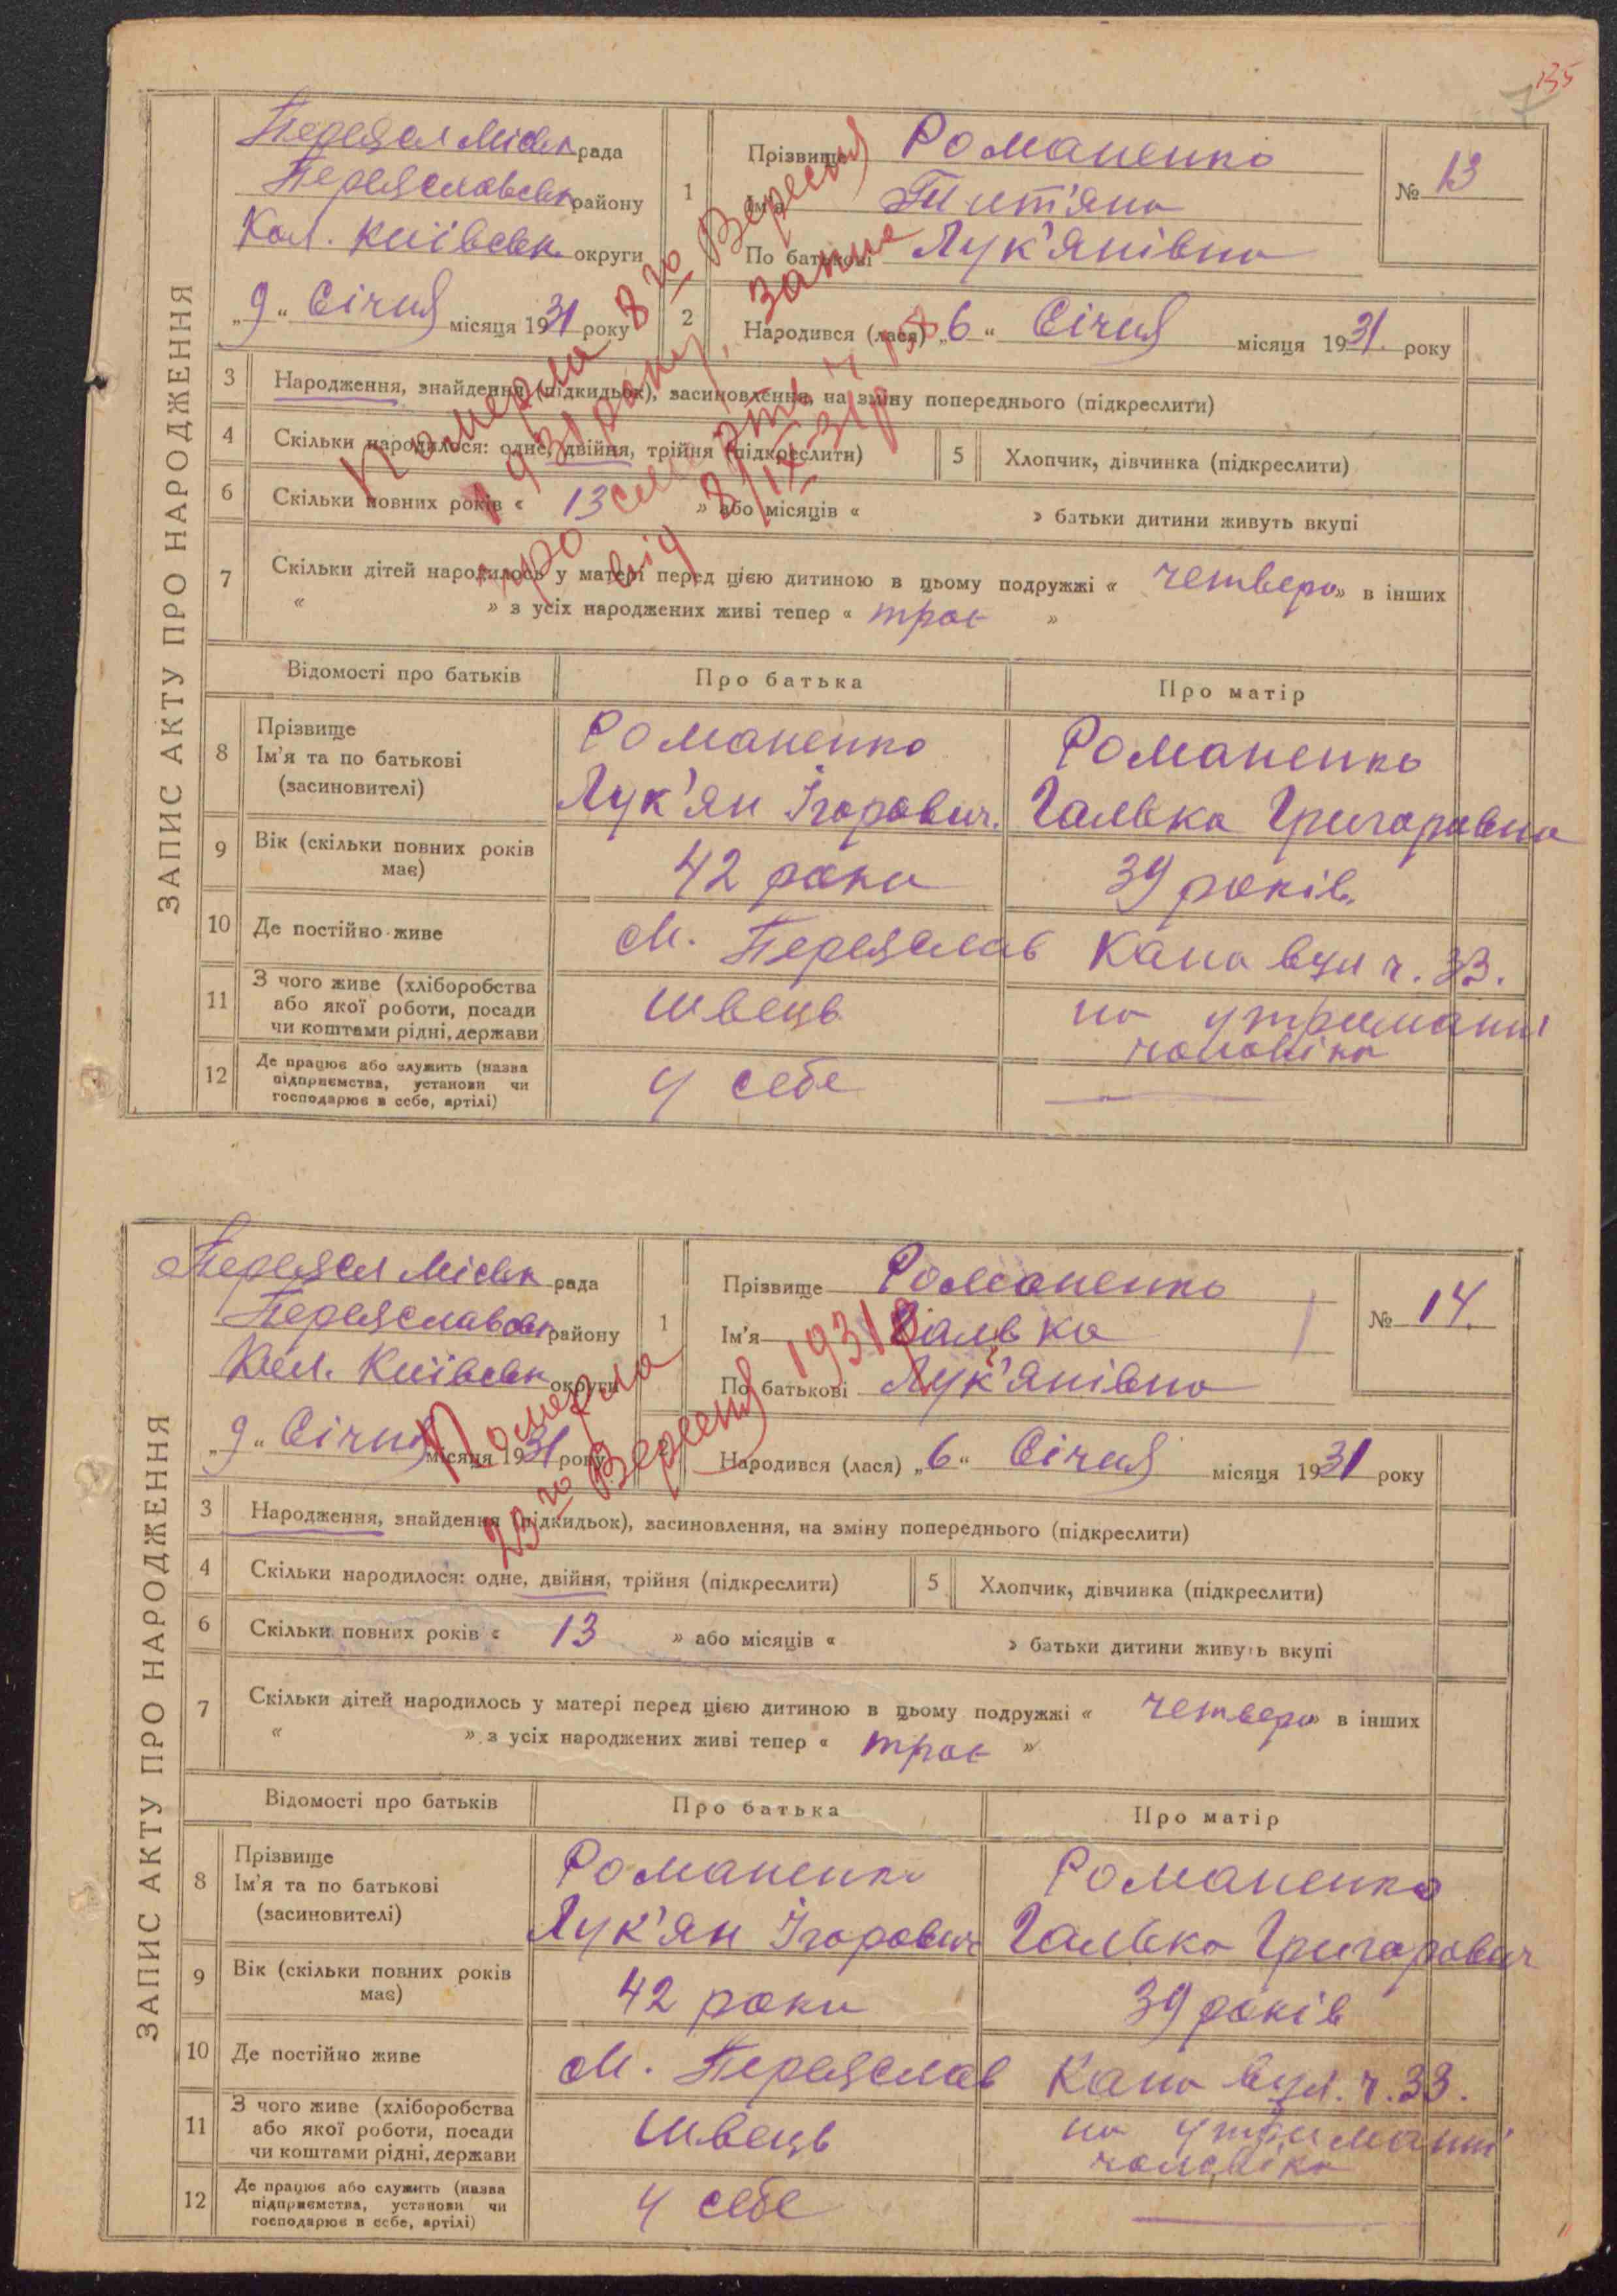 135
7
ЗАПИС АКТУ ПРО НАРОДЖЕННЯ
Переясл Міськ рада
Переяславськ району
Кол. Київськ. округи
„9“ Січня місяця 1931 року
1 Прізвище Романенко
Ім'я Тит'яна
По батькові Лук'янівна
№ 13
2 Народився (лася) „6“ Січня місяця 1931. року
Померла 8го Вересня
1931 року, запис
про смерть ч 158
від 8/IX-31р
3 Народження, знайдення (підкидьок), засиновлення, на зміну попереднього (підкреслити)
4 Скільки народилося: одне, двійня, трійня (підкреслити)
5 Хлопчик, дівчинка (підкреслити)
6 Скільки повних років « 13 » або місяців « » батьки дитини живуть вкупі
7 Скільки дітей народилось у матері перед цією дитиною в цьому подружжі « четверо » в інших
« » з усіх народжених живі тепер « троє »
Відомості про батьків Про батька Про матір
8 Прізвище Ім'я та по батькові (засиновителі)
Романенко Романенко
Лук'ян Ігорович. Галька Григоровна
9 Вік (скільки повних років має) 42 роки 39 років.
10 Де постійно живе м. Переяслав Кано вул ч. 33.
11 З чого живе (хліборобства або якої роботи, посади чи коштами рідні, держави
Швець на утриманні
чоловіка
12 Де працює або служить (назва підприємства, установи чи господарює в себе, артілі)
У себе
ЗАПИС АКТУ ПРО НАРОДЖЕННЯ
Переясл Міськ рада
Переяславськ району
Кол. Київськ округи
„9“ Січня місяця 1931 року
1 Прізвище Романенко
Ім'я Галька
По батькові Лук'янівна
№ 14.
2 Народився (лася) „6“ Січня місяця 1931 року
Померла
23го Вересня 1931р
3 Народження, знайдення (підкидьок), засиновлення, на зміну попереднього (підкреслити)
4 Скільки народилося: одне, двійня, трійня (підкреслити)
5 Хлопчик, дівчинка (підкреслити)
6 Скільки повних років « 13 » або місяців « » батьки дитини живуть вкупі
7 Скільки дітей народилось у матері перед цією дитиною в цьому подружжі « четверо » в інших
« » з усіх народжених живі тепер « троє »
Відомості про батьків Про батька Про матір
8 Прізвище Ім'я та по батькові (засиновителі)
Романенко Романенко
Лук'ян Ігорович Галька Григорович
9 Вік (скільки повних років має) 42 роки 39 років
10 Де постійно живе м. Переяслав Кано вул. ч. 33.
11 З чого живе (хліборобства або якої роботи, посади чи коштами рідні, держави
Швець на утриманні
чоловіка
12 Де працює або служить (назва підприємства, установи чи господарює в себе, артілі)
У себе